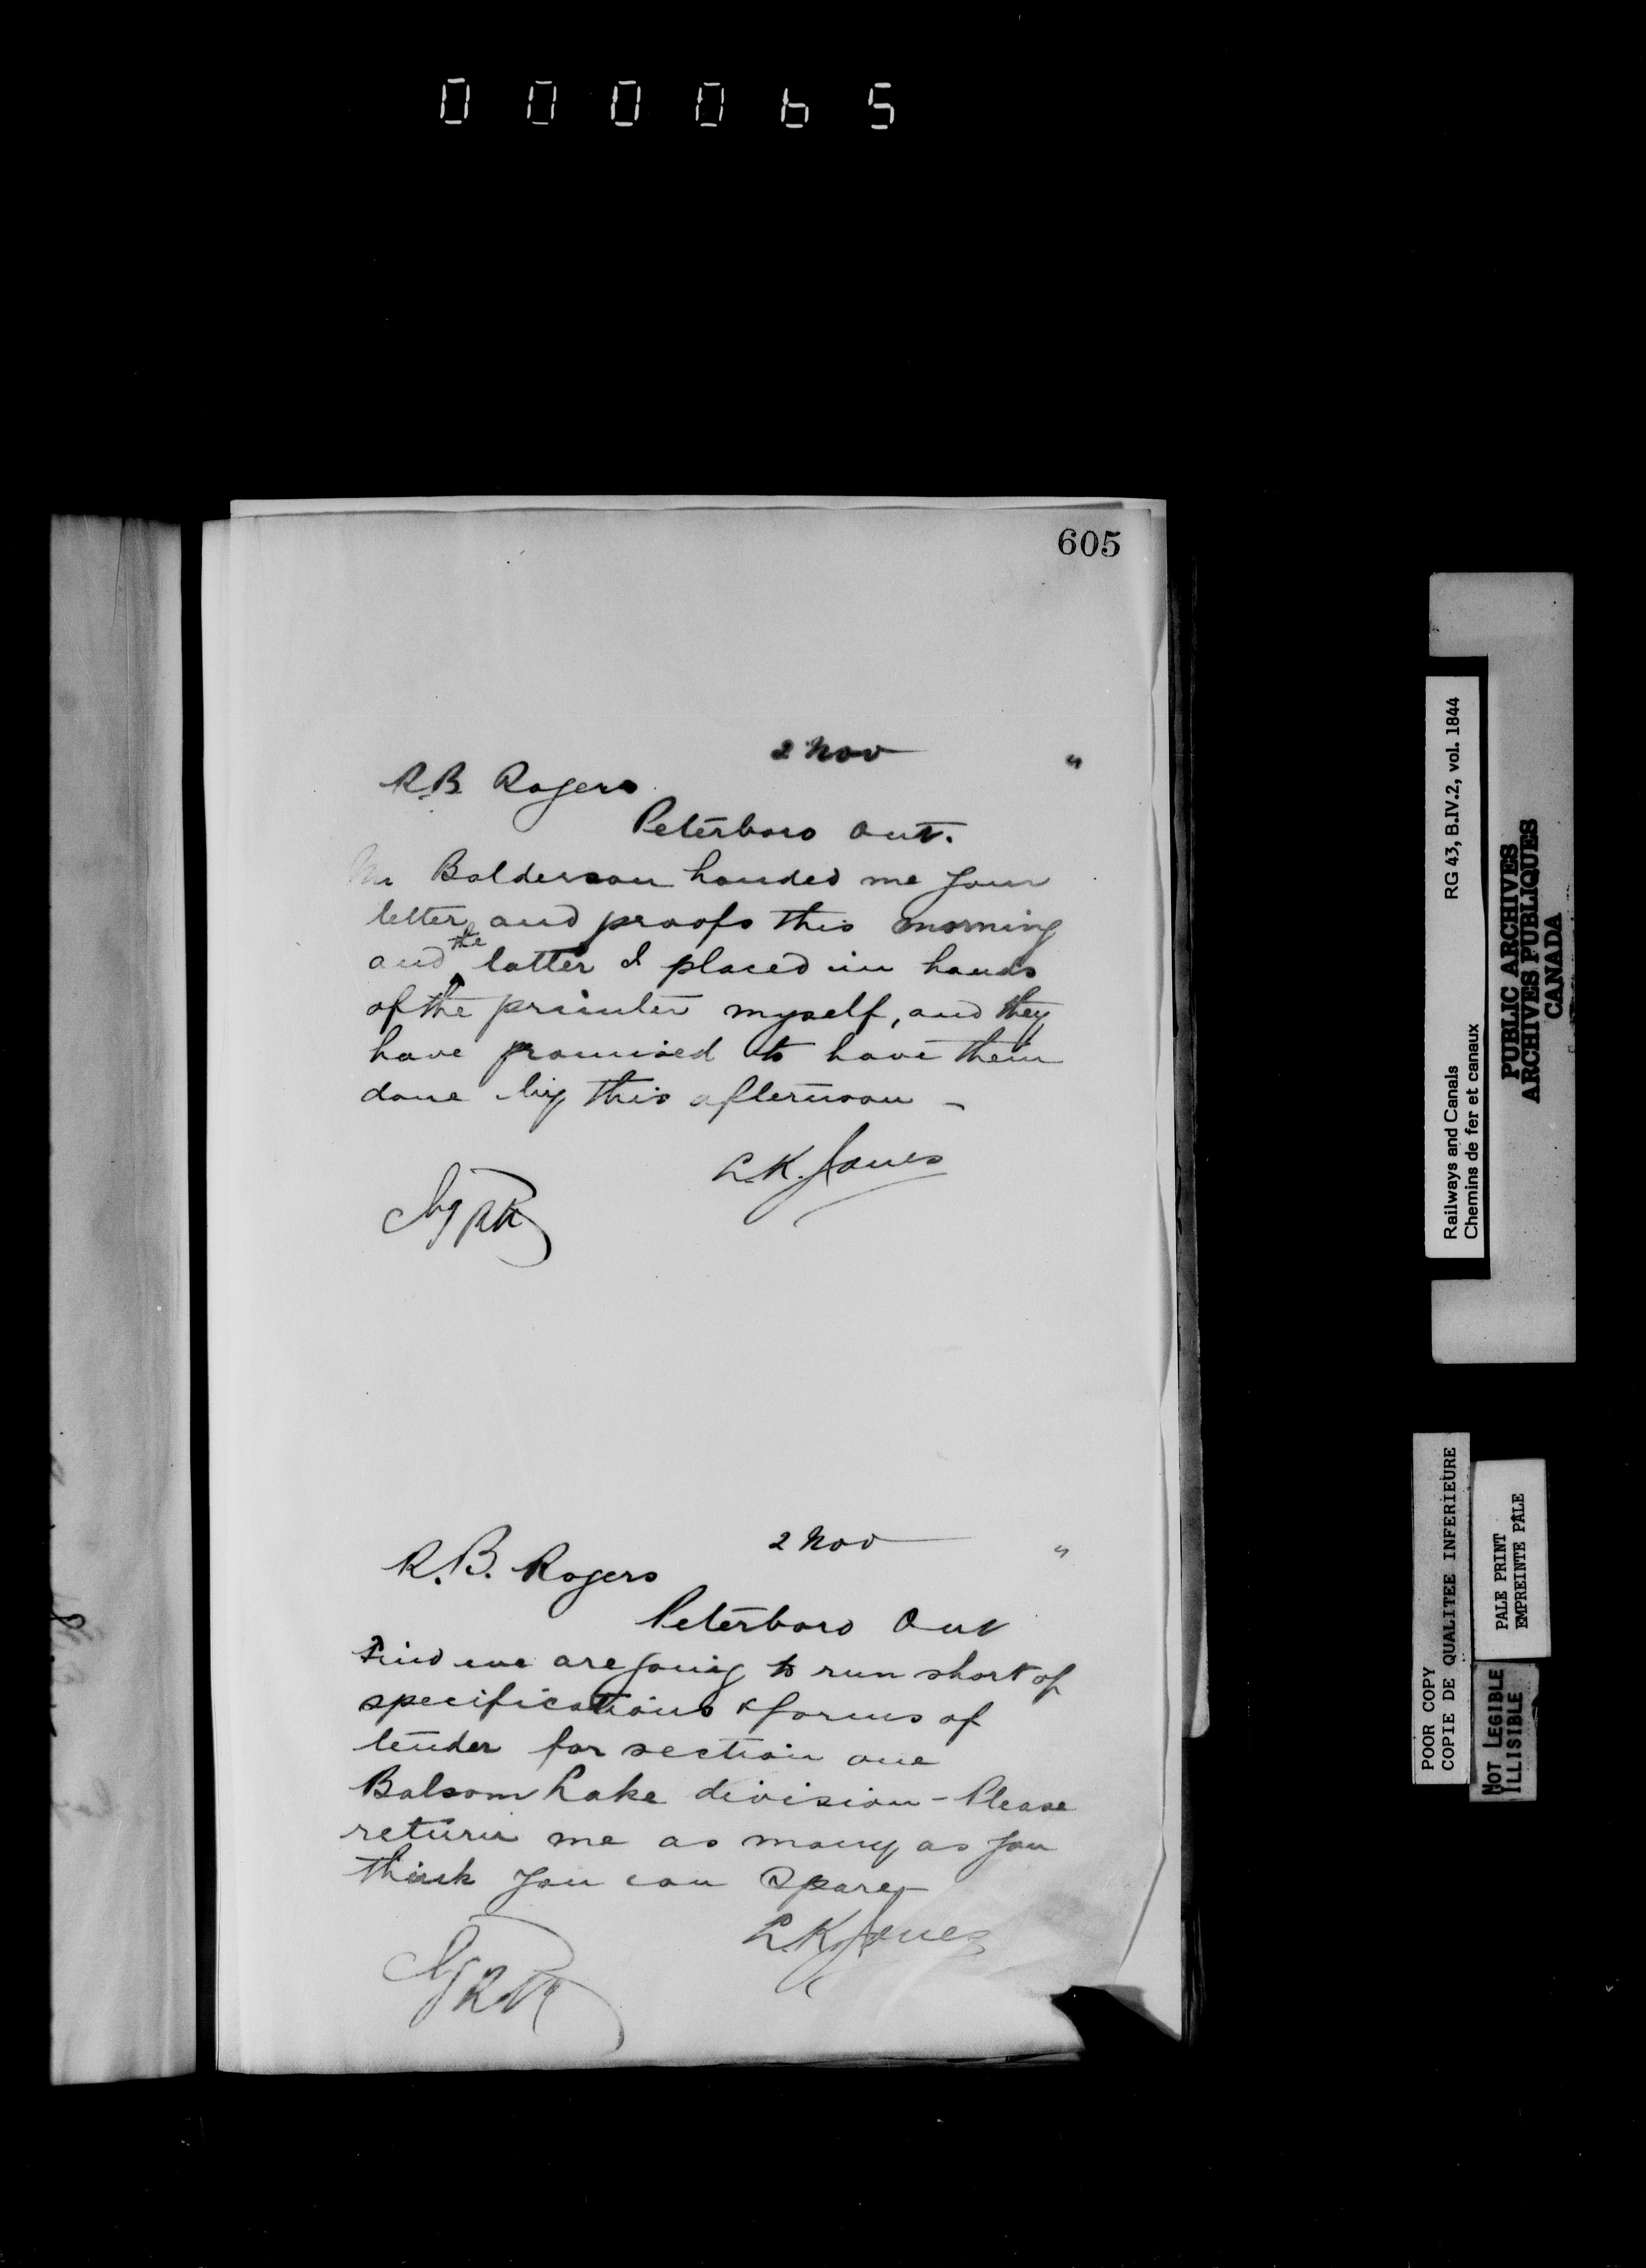 000065
605
2 Nov "
R.B. Rogers
Peterboro Ont.
Mr Balderson handed me your
letter and proofs this morning
and the latter I placed in hands
of the printer myself, and they
have promised to have them
done by this afternoon -
L.K. Jones
2 Nov "
R.B. Rogers
Peterboro Ont
Find we are going to run short of
specifications & forms of
tender for section one
Balsam Lake division - Please
return me as many as you
think you can spare -
L.K. Jones
Railways and Canals RG 43, B.IV.2, vol. 1844
Chemins de fer et canaux
PUBLIC ARCHIVES
ARCHIVES PUBLIQUES
CANADA
POOR COPY
COPIE DE QUALITEE INFERIEURE
PALE PRINT
EMPREINTE PÂLE
NOT LEGIBLE
ILLISIBLE